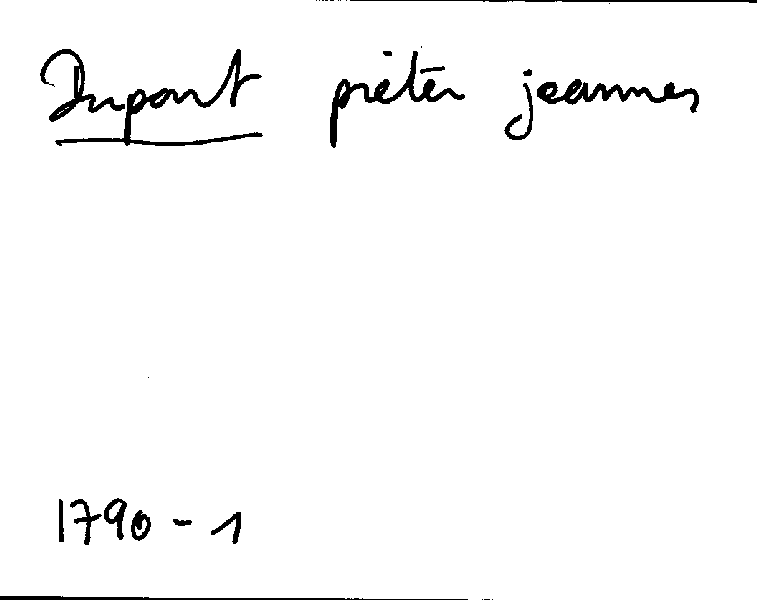 Dupont pieter jeannes
1790-1